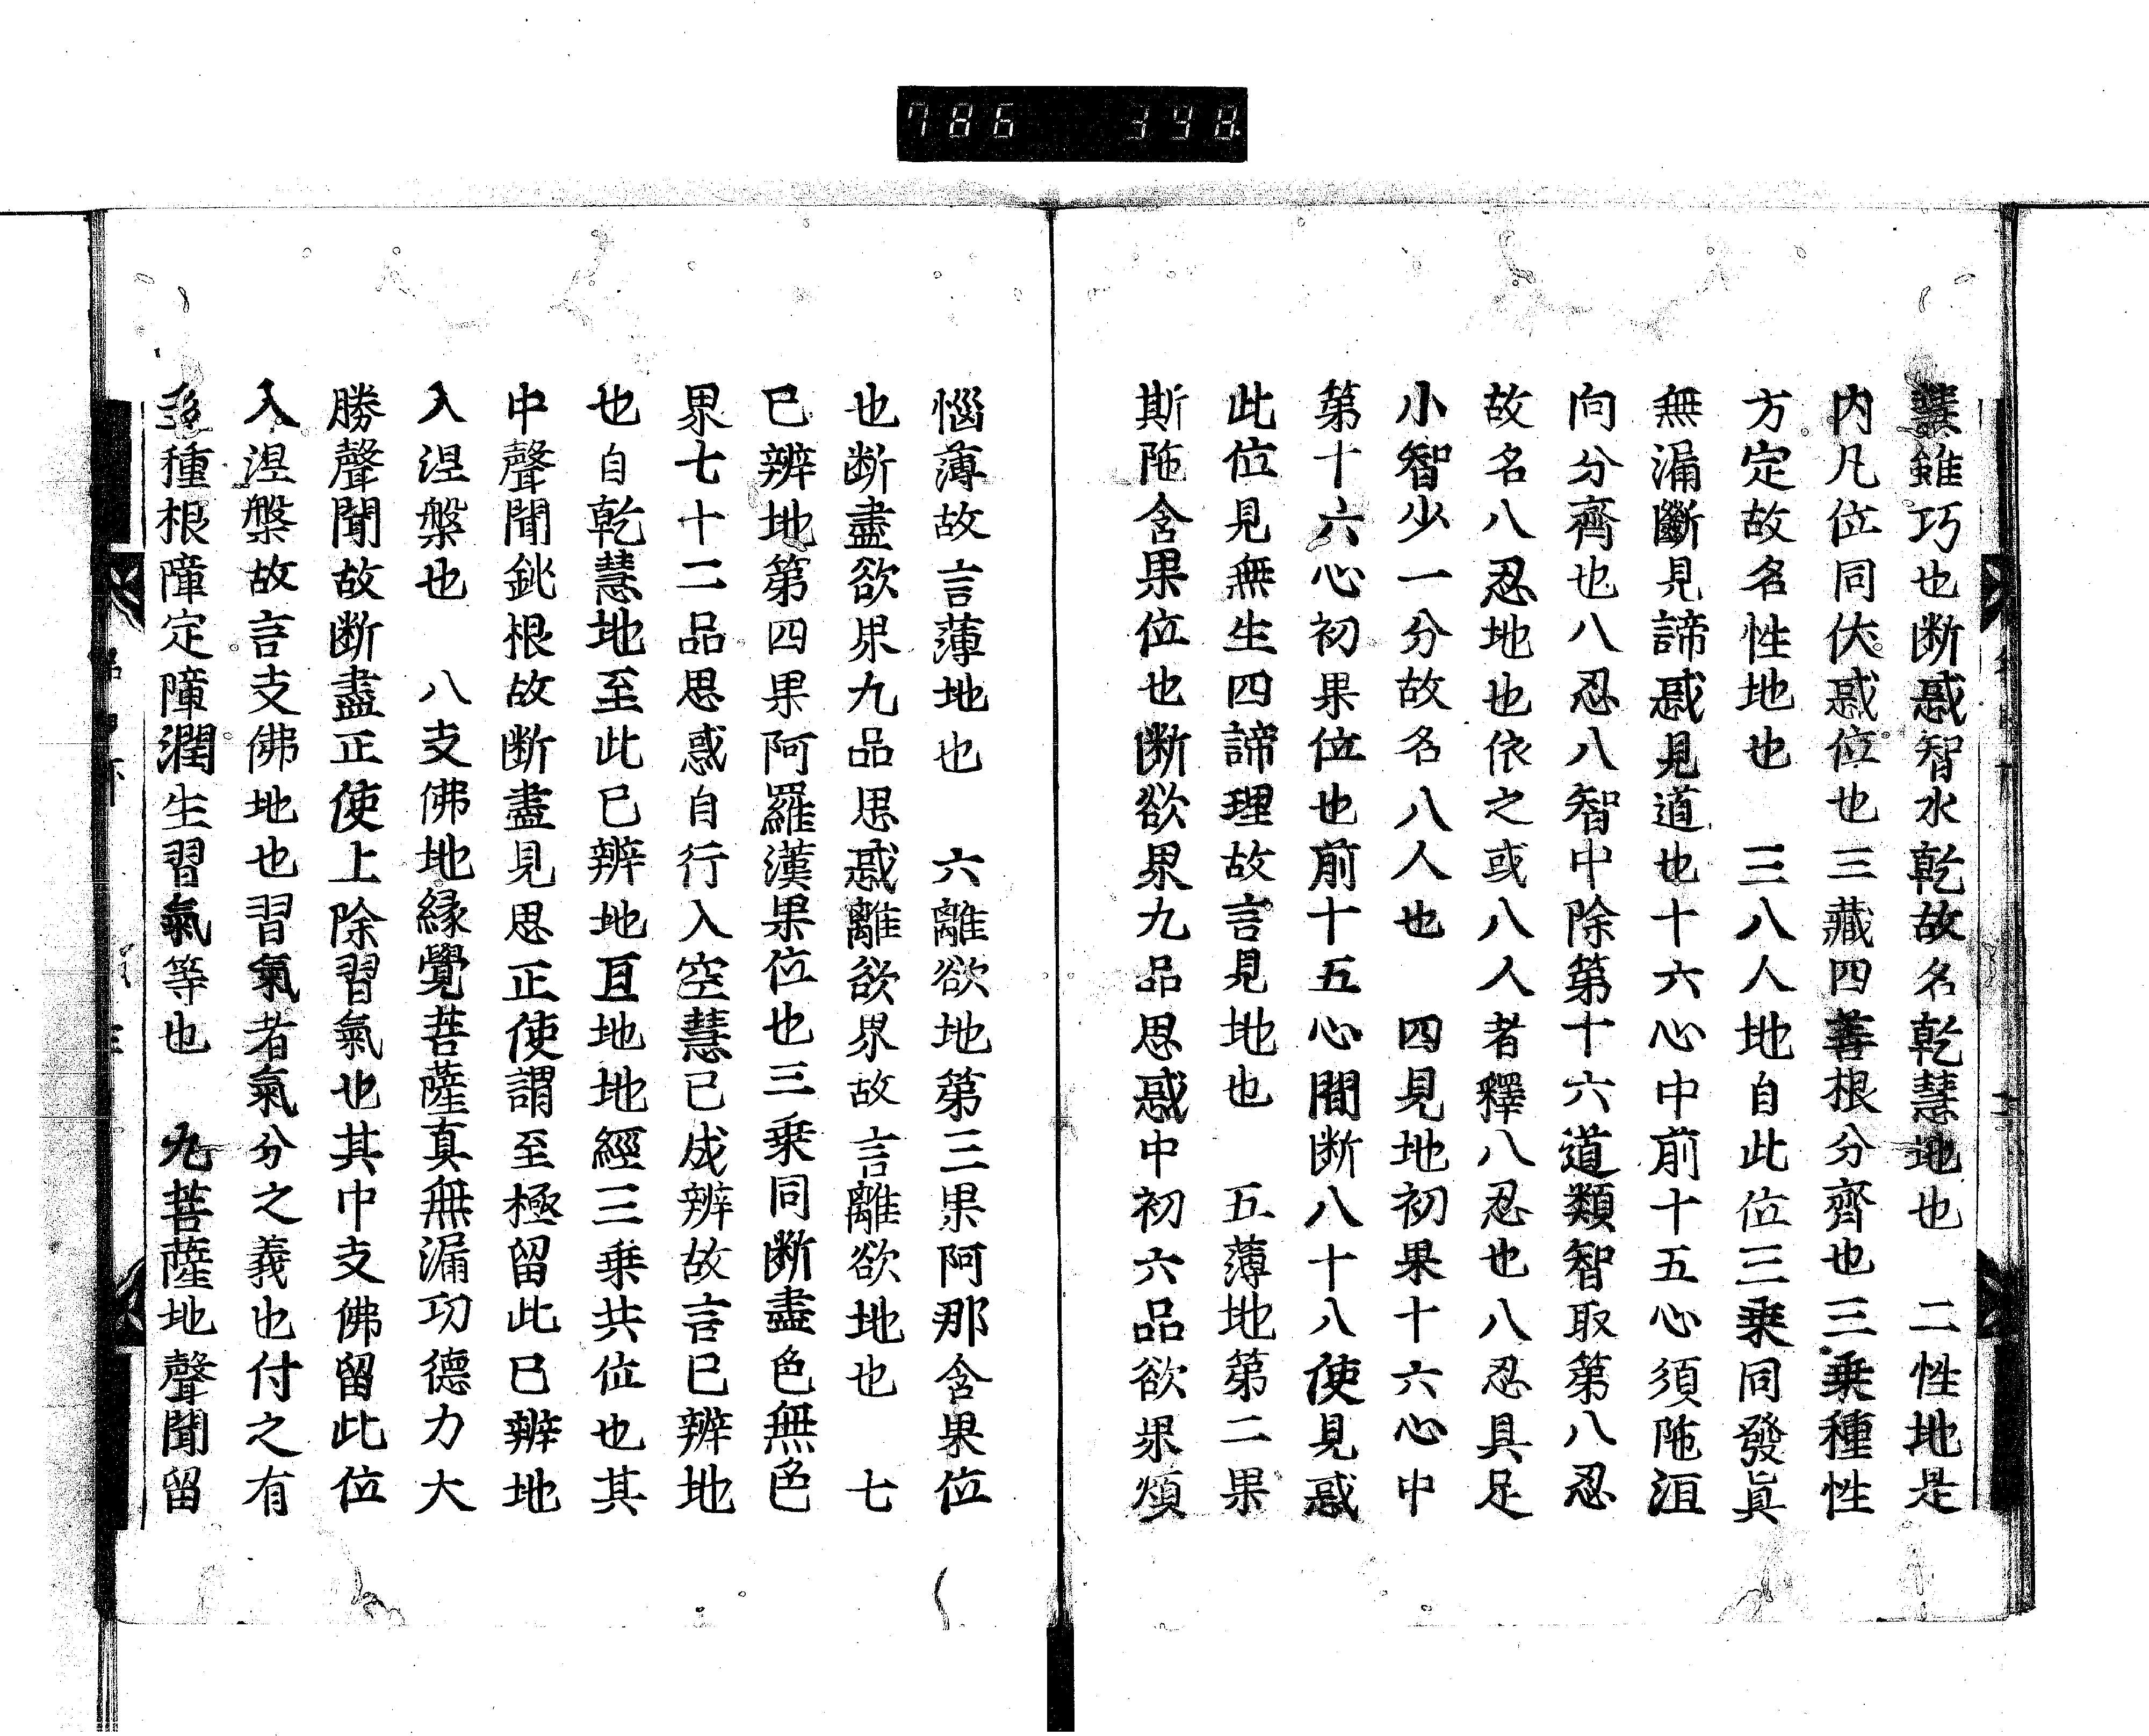 786 398
雖巧也断惑智水乾故名乾慧地也　二性地是
内凡位同伏惑位也三藏四善根分齊也三乗種性
方定故名性地也　三八人地自此位三乗同發眞
無漏斷見諦惑見道也十六心中前十五心須陁洹
向分齊也八忍八智中除第十六道類智取第八忍
故名八忍地也依之或八人者釋八忍也八忍具足
小智少一分故名八人也　四見地初果十六心中
第十六心初果位也前十五心間断八十八使見惑
此位見無生四諦理故言見地也　五薄地第二果
斯陁含果位也断欲界九品思惑中初六品欲界煩
惱薄故言薄地也　六離欲地第三果阿那含果位
也断盡欲界九品思惑離欲界故言離欲地也　七
已辨地第四果阿羅漢果位也三乗同断盡色無色
界七十二品思惑自行入空慧已成辨故言已辨地
也自乾慧地至此已辨地亘地地經三乗共位也其
中聲聞鈍根故断盡見思正使謂至極留此已辨地
入涅槃也　八支佛地縁覺菩薩真無漏功德力大
勝聲聞故断盡正使上除習氣也其中支佛留此位
入涅槃故言支佛地也習氣者氣分之義也付之有
種根障定障潤生習氣等也　九菩薩地聲聞留